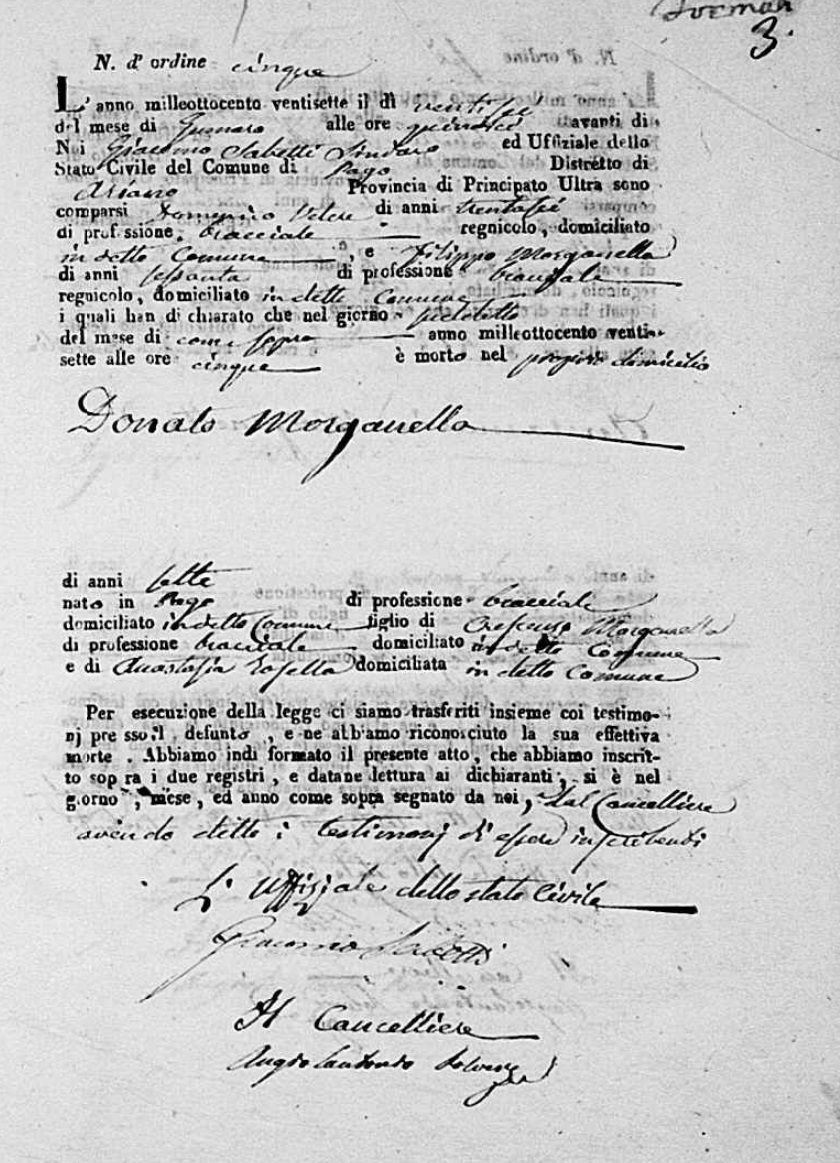 3.
N. d' ordine cinque
L' anno milleottocento ventisette il di ventisei
del mese di Gennaro alle ore quindici avanti di
Noi Giacomo Sabetti Sindaco ed Uffiziale dello
Stato Civile del Comune di Pago Distretto di
Ariano Provincia di Principato Ultra sono
comparsi Domenico di anni trentasei
di professione bracciale regnicolo, domiciliato
in detto Comune, e Filippo Morganella
di anni sessanta di professione bracciale
regnicolo, domiciliato in detto Comune
i quali han dichiarato che nel giorno
del mese di come sopra anno milleottocento venti-
sette alle ore cinque è morto nel proprio domicilio
Donato Morganella
di anni sette
nato in Pago di professione bracciale
domiciliato in detto Comune figlio di Morganella
di professione bracciale domiciliato in detto Comune
e di Anastasia domiciliata in detto Comune
Per esecuzione della legge ci siamo trasferiti insieme coi testimo-
nj presso il defunto, e ne abbiamo riconosciuto la sua effettiva
morte. Abbiamo indi formato il presente atto, che abbiamo inscrit-
to sopra i due registri, e datane lettura ai dichiaranti, si è nel
giorno, mese, ed anno come sopra segnato da noi, dal Cancelliere
avendo detto i testimonj di essere inscribenti
L' Uffiziale dello stato Civile
Giacomo Sabetti
Il Cancelliere